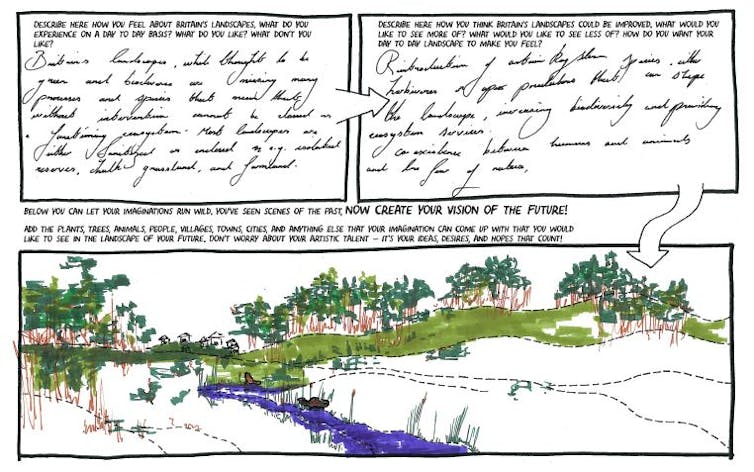 DESCRIBE HERE HOW YOU FEEL ABOUT BRITAIN'S LANDSCAPES, WHAT DO YOU
EXPERIENCE ON A DAY TO DAY BASIS? WHAT DO YOU LIKE? WHAT DON'T YOU
LIKE?
Britains landscapes, whilst thought to be
green and biodiverse are missing many
processes and species that mean that
without intervention cannot be classed as
a functioning ecosystem. Most landscapes are
either or enclosed e.g. isolated
reserves, chalk grassland, and farmland.
DESCRIBE HERE HOW YOU THINK BRITAIN'S LANDSCAPES COULD BE IMPROVED, WHAT WOULD YOU
LIKE TO SEE MORE OF? WHAT WOULD YOU LIKE TO SEE LESS OF? HOW DO YOU WANT YOUR
DAY TO DAY LANDSCAPE TO MAKE YOU FEEL?
Reintroduction of certain Keystone Species, either
herbivores or apex predators that can shape
the landscape, increasing biodiversity and providing
ecosystem services.
Co existence between humans and animals
and the of nature,
BELOW YOU CAN LET YOUR IMAGINATIONS RUN WILD, YOU'VE SEEN SCENES OF THE PAST, NOW CREATE YOUR VISION OF THE FUTURE!
ADD THE PLANTS, TREES, ANIMALS, PEOPLE, VILLAGES, TOWNS, CITIES, AND ANYTHING ELSE THAT YOUR IMAGINATION CAN COME UP WITH THAT YOU WOULD
LIKE TO SEE IN THE LANDSCAPE OF YOUR FUTURE. DON'T WORRY ABOUT YOUR ARTISTIC TALENT – IT'S YOUR IDEAS, DESIRES, AND HOPES THAT COUNT!